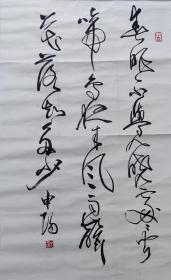 春眠不觉晓处处闻
啼鸟夜来风雨声
花落知多少 中海